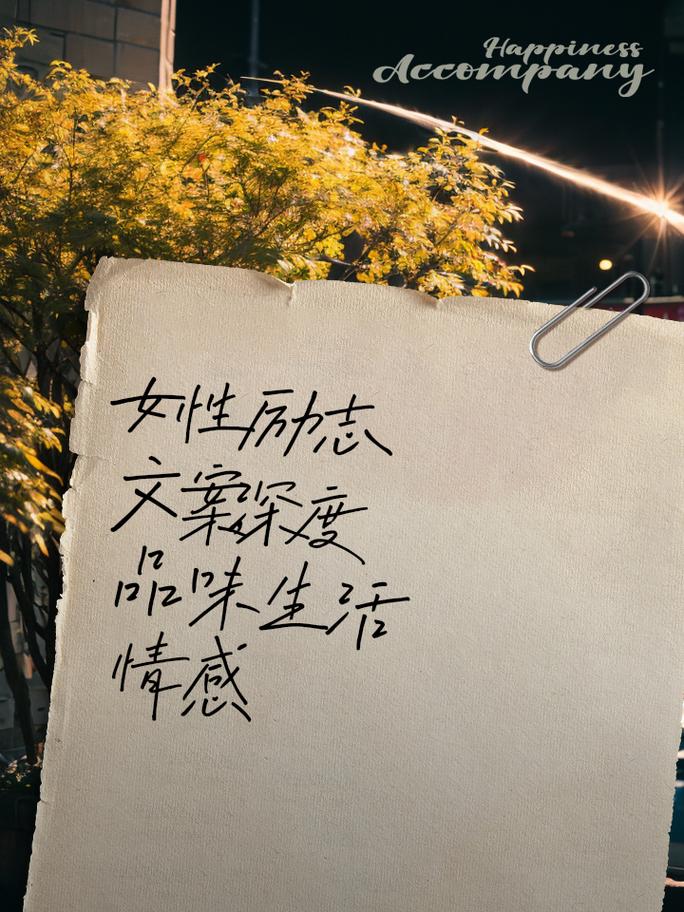 Happiness
Accompany
女性励志
文案深度
品味生活
情感